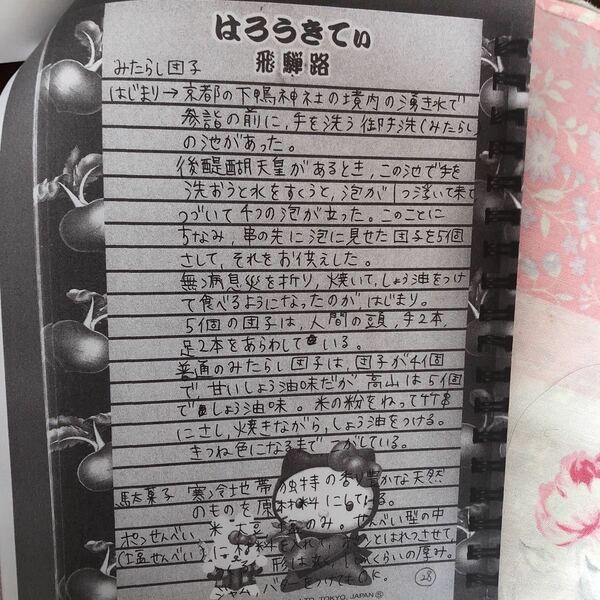 はろうきてぃ
飛騨路
みたらし団子
はじまり→京都の下鴨神社の境内の湧き水で
参詣の前に,手を洗う御手洗(みたらし
の池があった。
後醍醐天皇があるとき,この池で手を
洗おうと水をすくうと,泡が1つ浮いて来て
つづいて4つの泡が立った。このことに
ちなみ,串の先に泡に見せた団子を5個
さして,それをお供えした。
無病息災を祈り,焼いて,しょう油をつけ
て食べるようになったのが,はじまり。
5個の団子は,人間の頭,手2本,
足2本をあらわして いる。
普通のみたらし団子は,団子が4個
で,甘いしょう油味だが 高山は5個
で しょう油味。米の粉をねって竹串
にさし,焼きながら,しょう油をつける。
きつね色になるまで こがしている。
駄菓子 寒冷地帯独特の香り豊かな天然
のものを原材料にしている。
ポンせんべい 米 大豆 のみ。せんべい型の中
(塩せんべい) に材料を入れ, ポンとはれつさせて,
形は丸く くらいの厚み。
ジャム,バターをつけてもOK。
28
LTD. TOKYO, JAPAN